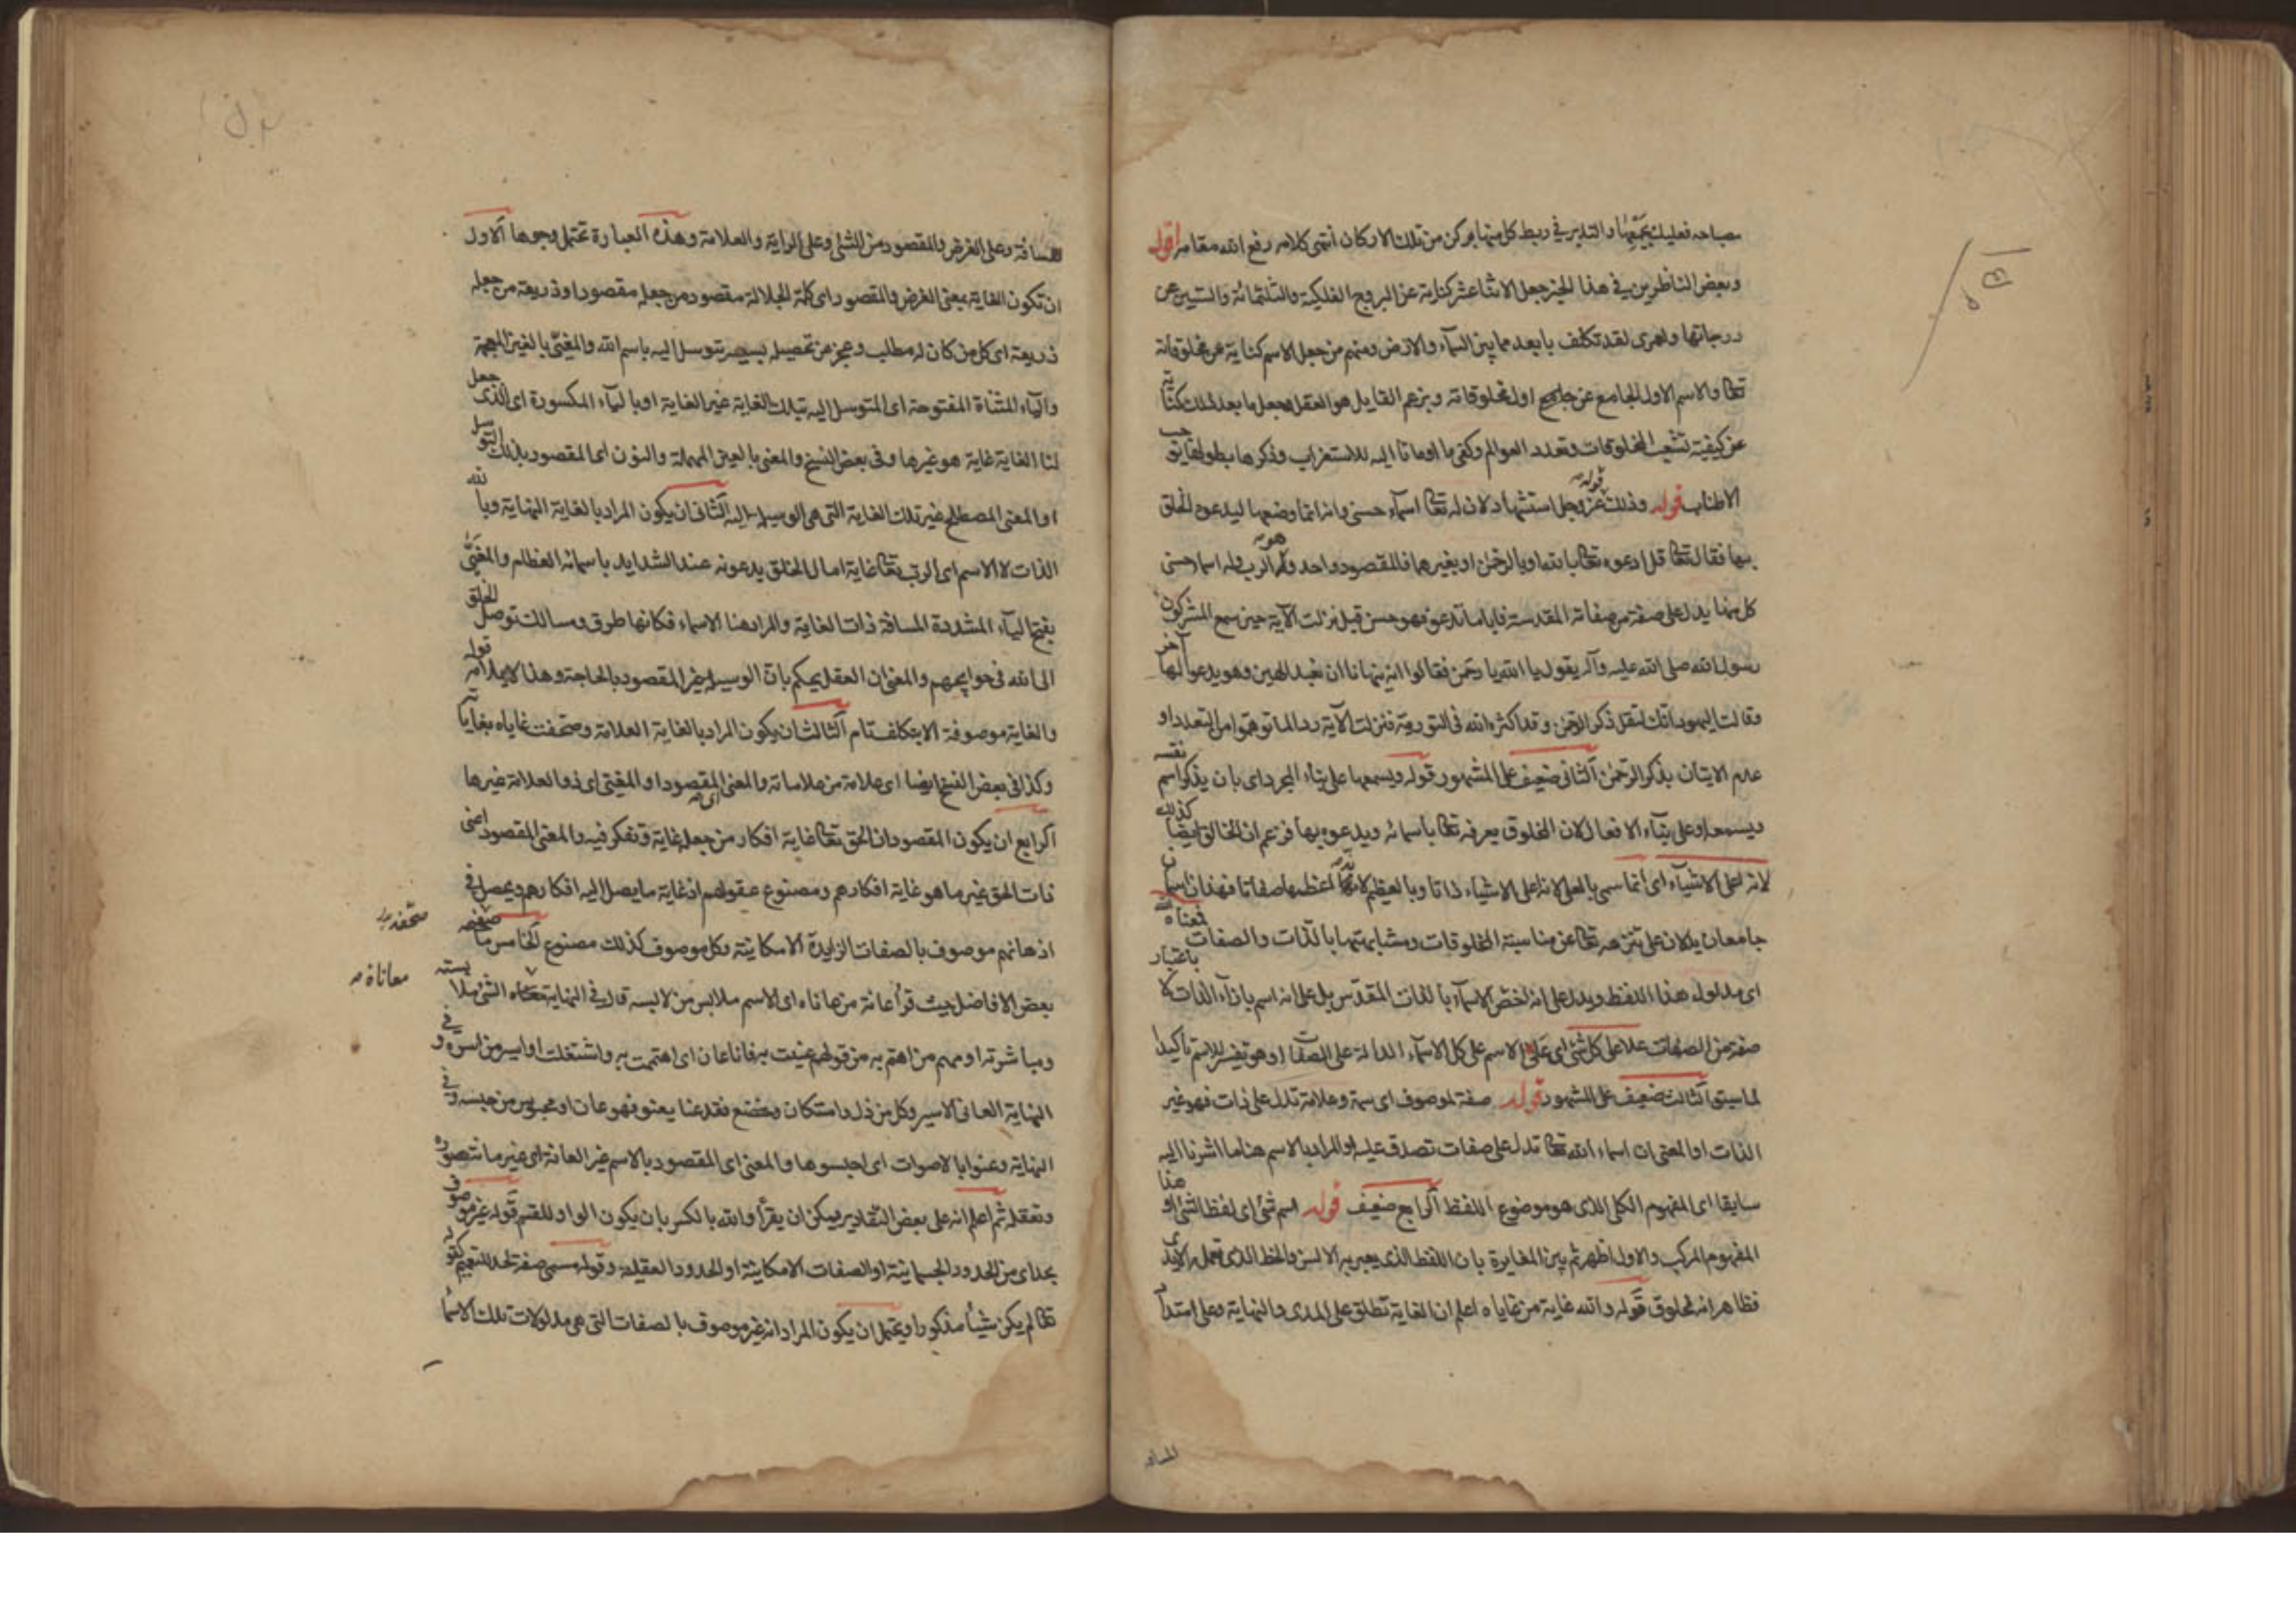 مصباحه فعليك بجمعها والتدبر في ربط كل منها بركن من تلك الاركان انتهى كلامه رفع الله مقامه اقول
وبعض الناظرين في هذا الخبر جعل الاثنا عشر كناية عن البروج الفلكية والثلثمائة والستين عن
درجاتها ولعمرى لقد تكلف بابعد مما بين السماء والارض ومنهم من جعل الاسم كناية عن مخلوقاته
تعا والاسم الاول الجامع عن اول مخلوقاته وبزعم القايل هو العقل وجعل ما بعد ذلك كناية
عن كيفية تشعب المخلوقات وتعدد العوالم وكفى ما اومانا اليه للاستغراب وذكرها بطولها يوجب
الاطناب قوله وذلك قوله عز وجل استشهاد لان له تعا اسماء حسنى وانه انما وضعها ليدعوه الخلق
بها فقال تعا قل ادعوه تعا بالله او بالرحمن او بغيرهما فالمقصود واحد وهو الرب وله اسما حسنى
كل منها يدل على صفة من صفاته المقدسة فايا ما تدعو فهو حسن قيل نزلت الآية حين سمع المشركون
رسول الله صلى الله عليه وآله يقول يا الله يا رحمن فقالوا انه ينهانا ان نعبد الهين وهو يدعو الها آخر
وقالت اليهود انك لتقل ذكر الرحمن وقد اكثره الله في التورية فنزلت الآية ردا لما توهموا من التعدد او
عدم الاتيان بذكر الرحمن الثانى ضعيف على المشهور قوله ويسمعها على بناء المجرد اى بان يذكر اسم نفسه
ويسمعه او على بناء الافعال لان المخلوق يعرفه تعا باسمائه ويدعوه بها فزعم ان الخالق ايضا كذلك
لانه اعلى الاشياء اى انما سمى بالعلى لانه اعلى الاشياء ذاتا وبالعظيم لانه اعظمها صفاتا فهذان اسمان
جامعان يدلان على تنزهه تعا عن مناسبة المخلوقات ومشابهتها بالذات والصفات فمعناه
اى مدلول هذا اللفظ ويدل على انه اخص الاسماء بالذات المقدس بل على انه اسم بازاء الذات لا باعتبار
صفة من الصفات علا على كل شئ اى علا الاسم على كل الاسماء الدالة على الصفات او هو تفسير للاسم تاكيدا
لما سبق الثالث ضعيف على المشهور قوله صفة لموصوف اى سمة وعلامة تدل على ذات فهو غير
الذات او المعنى ان اسماء الله تعا تدل على صفات تصدق عليه او المراد بالاسم هنا ما اشرنا اليه
سابقا اى المفهوم الكلى الذى هو موضوع اللفظ الرابع ضعيف قوله اسم شئ اى لفظ الشئ او هذا
المفهوم المركب والاول اظهر ثم بين المغايرة بان اللفظ الذى يعبر به الالسن والخط الذى تعمله الايدى
فظاهر انه مخلوق قوله والله غاية من غاياه اعلم ان الغاية تطلق على المدى والنهاية وعلى امتداد
المسافة
المسافة وعلى الغرض والمقصود من الشئ وعلى الراية والعلامة وهذه العبارة تحتمل وجوها الاول
ان تكون الغاية بمعنى الغرض والمقصود اى كلمة الجلالة مقصود من جعله مقصودا وذريعة من جعله
ذريعة اى كل من كان له مطلب وعجز عن تحصيله بسعيه يتوسل اليه باسم الله والمغيى بالغين المعجمة
والياء المثناة المفتوحة اى المتوسل اليه بتلك الغاية غير الغاية او بالياء المكسورة اى الذى جعل
لنا الغاية غاية هو غيرها وفى بعض النسخ والمعنى بالعين المهملة والنون اى المقصود بذلك التوسل
او المعنى المصطلح غير تلك الغاية التى هى الوسيلة اليه الثانى ان يكون المراد بالغاية النهاية وبالله
الذات لا الاسم اى الرب تعا غاية امال الخلق يدعونه عند الشدايد باسمائه العظام والمغيى
بفتح الياء المشددة المسافة ذات الغاية والمراد هنا الاسماء فكانها طرق ومسالك توصل الخلق
الى الله فى حوايجهم والمعنى ان العقل يحكم بان الوسيلة غير المقصود بالحاجة وهذا لا يلايمه قوله
والغاية موصوفة الا بتكلف تام الثالث ان يكون المراد بالغاية العلامة وصحفت غاياه بغاياته
وكذا فى بعض النسخ ايضا اى علامة من علاماته والمعنى اى المقصود او المغيى اى ذو العلامة غيرها
الرابع ان يكون المقصود ان الحق تعا غاية افكار من جعله غاية وتفكر فيه والمعنى المقصود اعنى
ذات الحق غير ما هو غاية افكارهم ومصنوع عقولهم اذ غاية ما يصل اليه افكارهم ويحصل فى
اذهانهم موصوف بالصفات الزايدة الامكانية وكل موصوف كذلك مصنوع الخامس ما صحفه
صحفه
بعض الافاضل حيث قرأ عانة من عاناه اى الاسم ملابس من لابسه قال فى النهاية معاناة الشئ ملابسته
معاناة
ومباشرته او مهم من اهتم به من قولهم عنيت به فانا عان اى اهتممت به واشتغلت او اسير من اسره وفى
النهاية العانى الاسير وكل من ذل واستكان وخضع فقد عنا يعنو فهو عان او محبوس من حبسه وفى
النهاية وعنوا بالاصوات اى احبسوها والمعنى اى المقصود بالاسم غير العانة اى غير ما نتصوره
ونعقله ثم اعلم انه على بعض التقادير يمكن ان يقرأ والله بالكسر بان يكون الواو للقسم قوله غير موصوف
بحد اى من الحدود الجسمانية او الصفات الامكانية او الحدود العقلية وقوله مسمى صفة لحد للتعميم كقوله
تعا لم يكن شيئا مذكورا ويحتمل ان يكون المراد انه غير موصوف بالصفات التى هى مدلولات تلك الاسماء